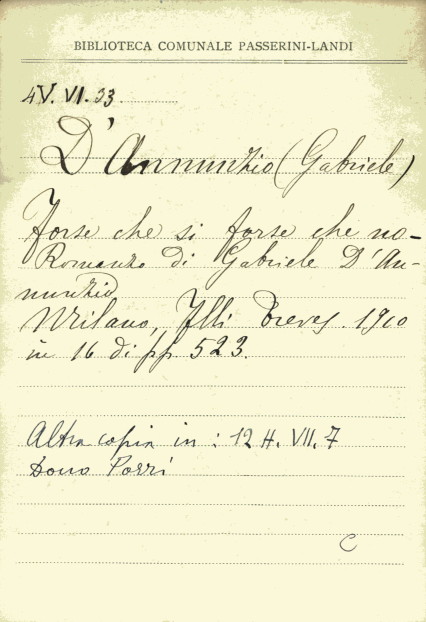 BIBLIOTECA COMUNALE PASSERINI-LANDI
4V. VI. 33
D'Annunzio (Gabriele)
Forse che si forse che no -
Romanzo di Gabriele D'An-
nunzio
Milano, Flli Treves. 1910
in 16 di pp 523.
Altra copia in : 12 H. VII. 7
Dono Porri
C